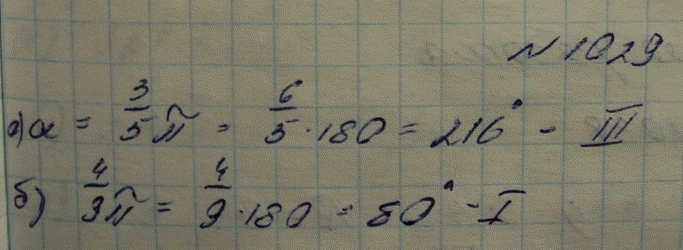 № 1029
а) α = 3/5 π = 6/5 · 180 = 216° - III
б) 4/9 π = 4/9 · 180 = 80° - I